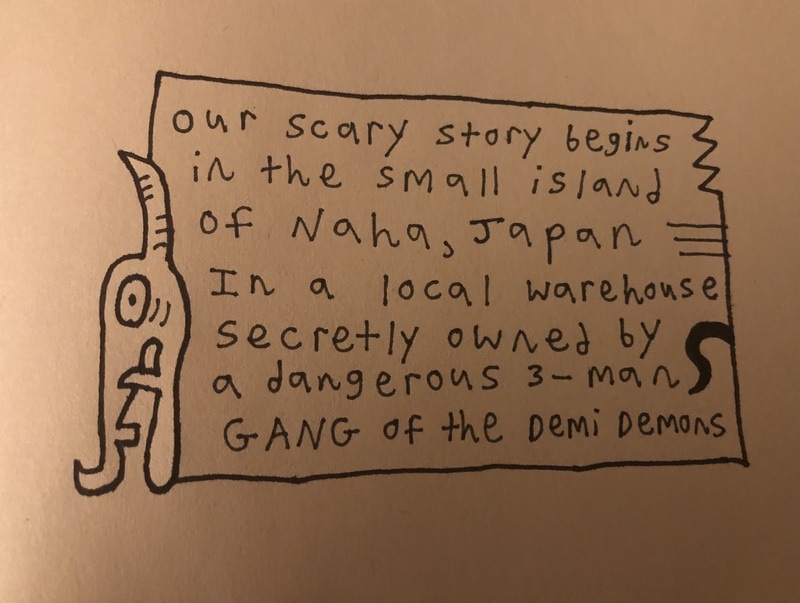 our scary story begins
in the small island
of Naha, Japan
In a local warehouse
secretly owned by
a dangerous 3-man
GANG of the Demi Demons